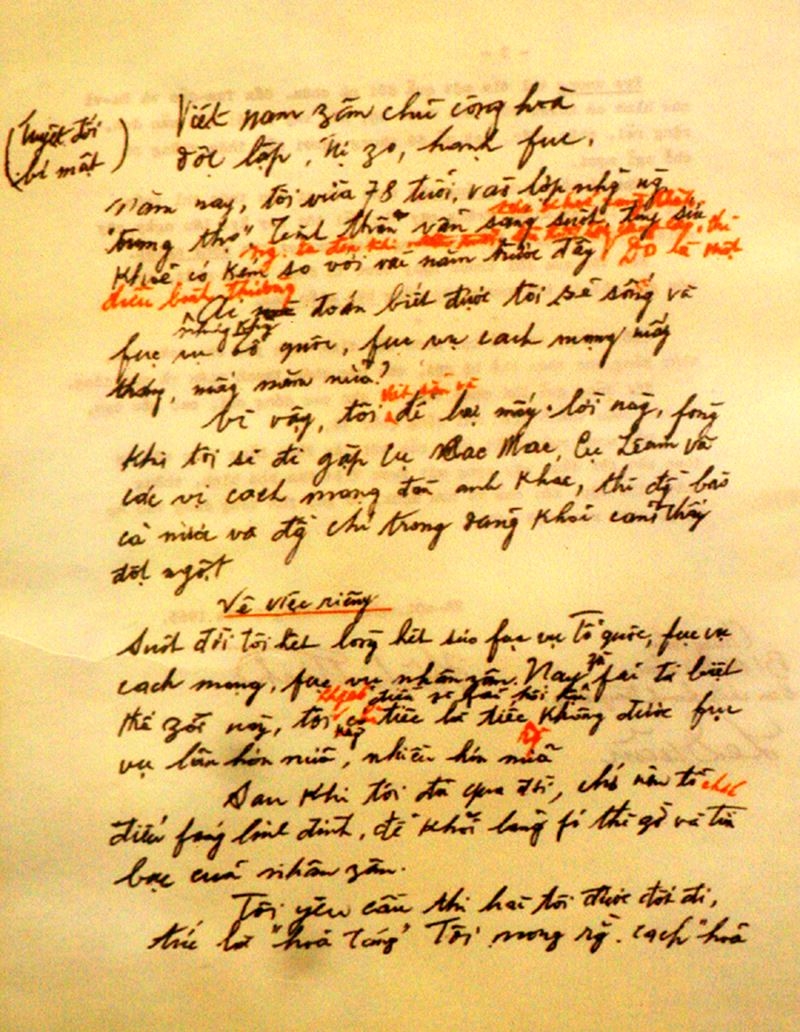 (Tuyệt đối
bí mật)
Việt nam zân chủ cộng hoà
độc lập, tự zo, hạnh fúc.
Năm nay, tôi vừa 78 tuổi, vào lớp nhg̃ ng̀
"trung thọ". Tinh thần vẫn sáng suốt, tuy sức
khoẻ có kém so với vài năm trước đây. Đó là một
điều bình thường
Ai mà đoán biết được tôi sẽ sống và
fục vụ tổ quốc, fục vụ cách mạng mấy
tháng, mấy năm nữa?
Vì vậy, tôi viết sẵn và để lại mấy lời này, fòng
khi tôi sẽ đi gặp cụ Các Mác, Cụ Lênin và
các vị cách mạng đàn anh khác, thì đg̀ bào
cả nước và đg̀ chí trong đảng khỏi cảm thấy
đột ngột
Về việc riêng
Suốt đời tôi hết lòng hết sức fục vụ tổ quốc, fục vụ
cách mạng, fục vụ nhân zân. Nay zù fải từ biệt
thế zới này, tôi không có điều gì fải hối hận
chỉ tiếc là tiếc không được fục
vụ lâu hơn nữa, nhiều hơn nữa
Sau khi tôi đã qua đời, chớ nên tổ chức
điếu fúng linh đình, để khỏi lãng fí thì gờ và tiền
bạc của nhân zân.
Tôi yêu cầu thi hài tôi được đốt đi,
tức là "hoả táng". Tôi mong rg̀ cách "hoả